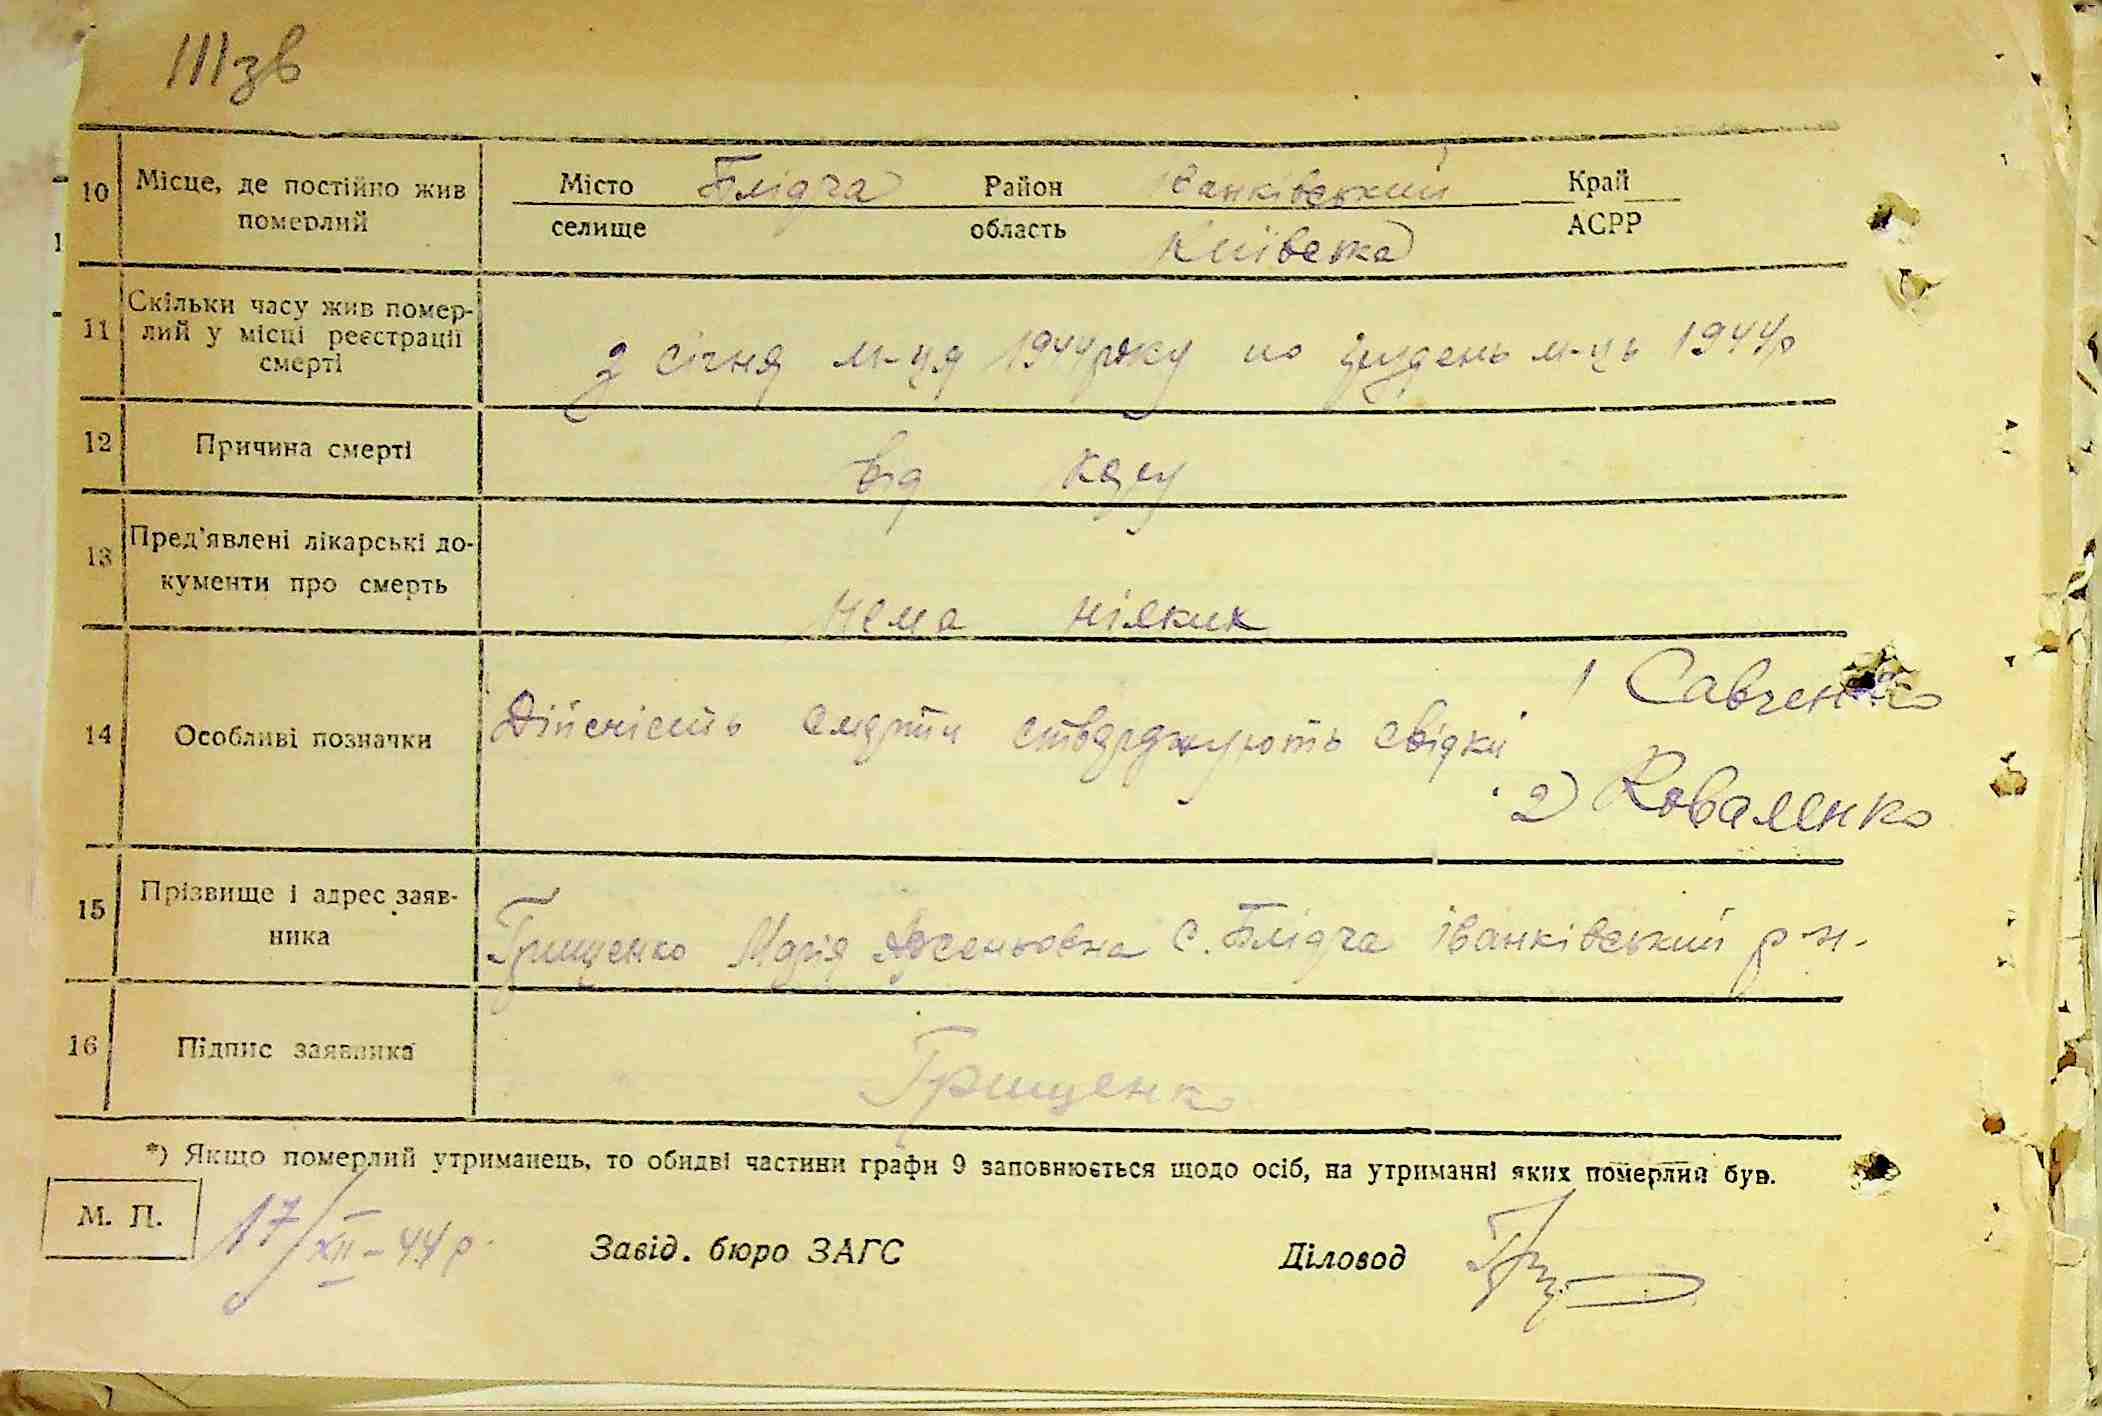 III зв
10 Місце, де постійно жив померлий
Місто Блідча Район Іванківський Край
селище область Київська АСРР
11 Скільки часу жив помер-
лий у місці реєстрації
смерті
з січня м-ця 1944 року по грудень м-ць 1944 р
12 Причина смерті
від
13 Пред'явлені лікарські до-
кументи про смерть
нема ніяких
14 Особливі позначки
Дійсність смерти стверджують свідки
1 Савченко
2) Коваленко
15 Прізвище і адрес заяв-
ника
Грищенко Марія Арсеньовна с. Блідча Іванківський р-н.
16 Підпис заявника
Грищенко
*) Якщо померлий утриманець, то обидві частини графи 9 заповнюється щодо осіб, на утриманні яких померлий був.
М. П. 17/XII-44 р. Завід. бюро ЗАГС Діловод